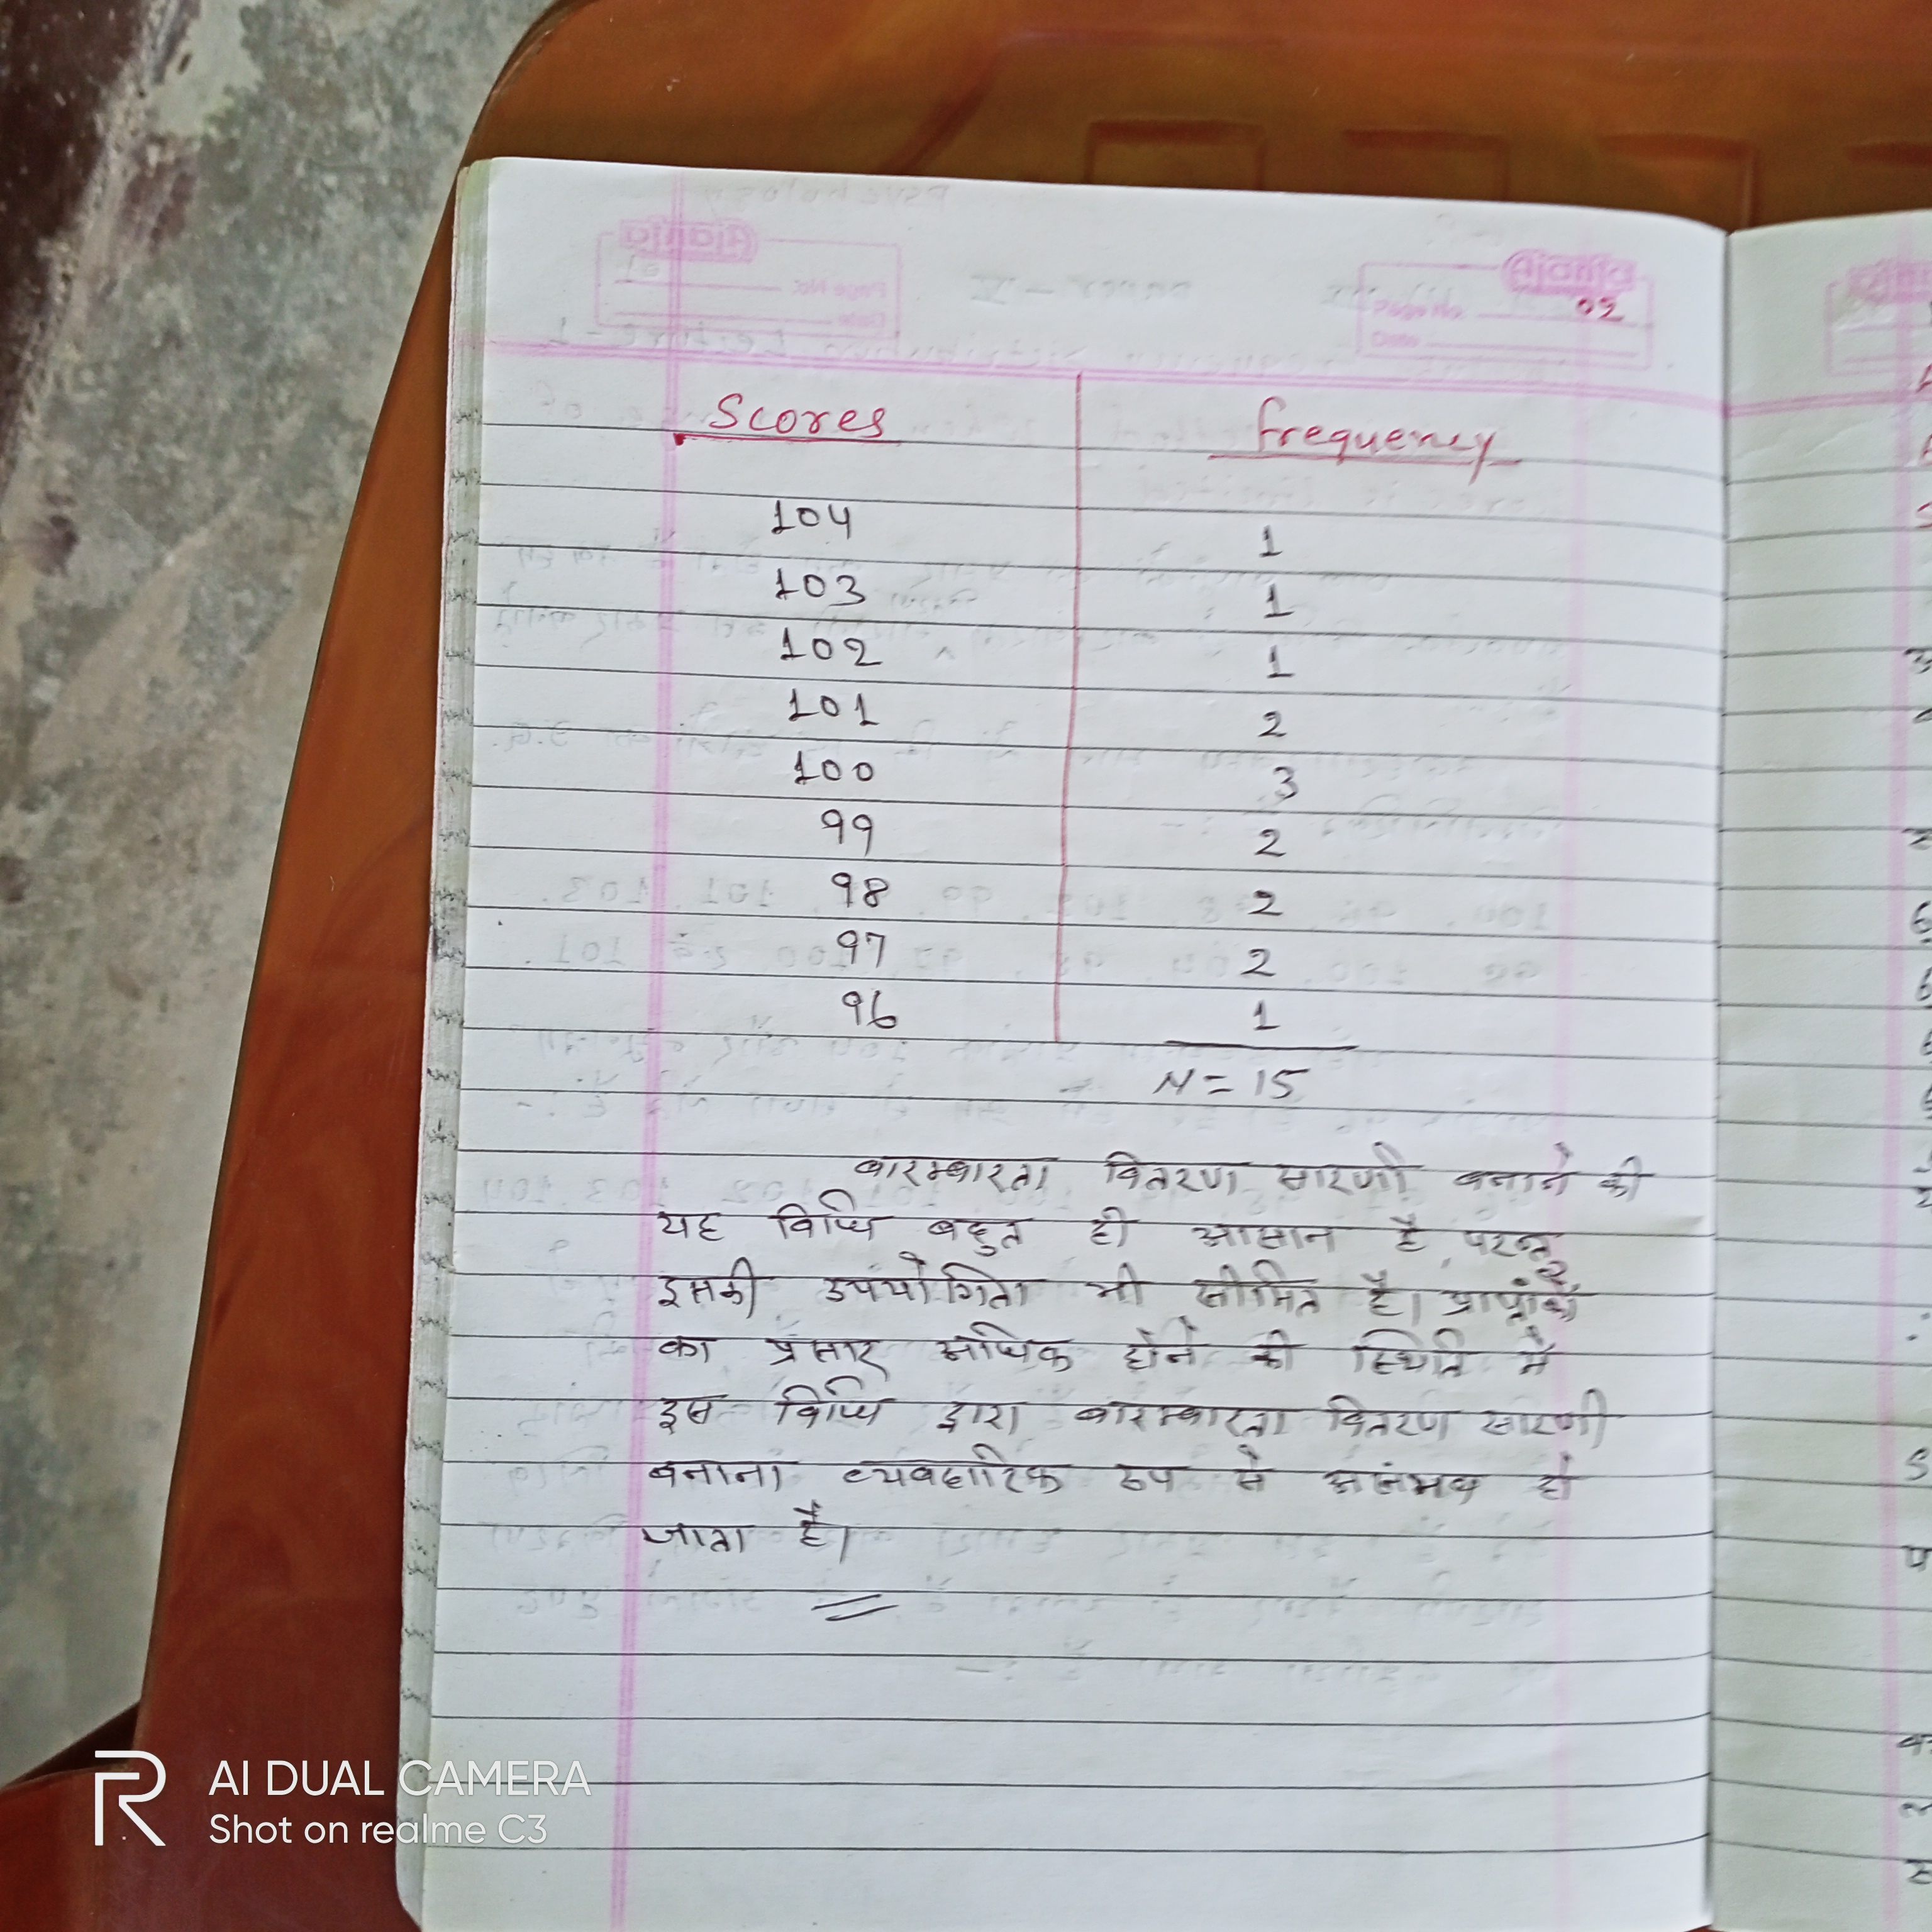 Ajanta
Page No. 02
Date
Scores frequency
104 1
103 1
102 1
101 2
100 3
99 2
98 2
97 2
96 1
N = 15
बारम्बारता वितरण सारणी बनाने की
यह विधि बहुत ही आसान है, परन्तु
इसकी उपयोगिता भी सीमित है। प्राप्तांकों
का प्रसार अधिक होने की स्थिति में
इस विधि द्वारा बारम्बारता वितरण सारणी
बनाना व्यवहारिक रूप से असंभव हो
जाता है।
AI DUAL CAMERA
Shot on realme C3